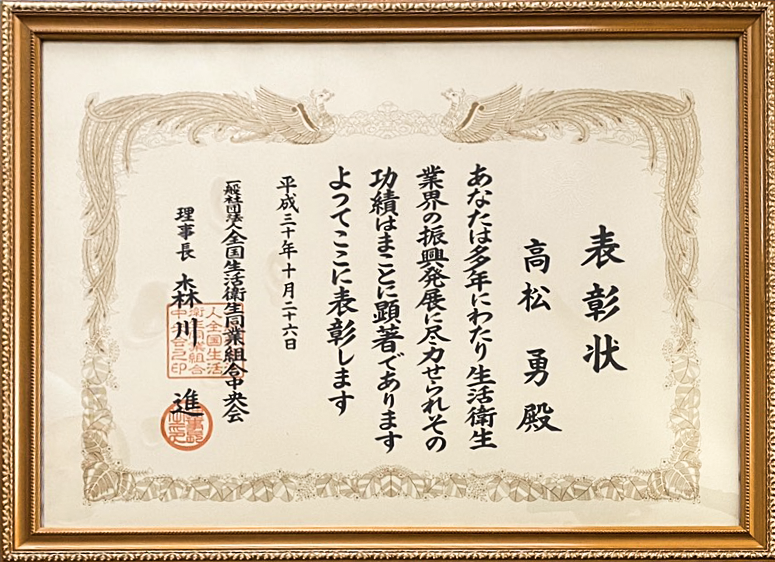 表彰状
高松 勇 殿
あなたは多年にわたり生活衛生
業界の振興発展に尽力せられその
功績はまことに顕著であります
よってここに表彰します
平成三十年十月二十六日
一般社団法人全国生活衛生同業組合中央会
理事長 森川 進
人全国生活
衛生同業組合
中央会之印